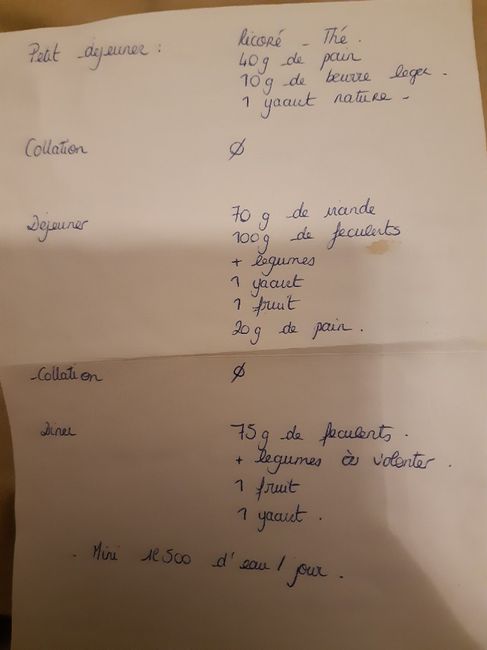 Petit dejeuner : Ricoré - Thé.
40g de pain
10g de beurre leger.
1 yaourt nature -
Collation ∅
Déjeuner 70 g de viande
100g de feculents
+ legumes
1 yaourt
1 fruit
20g de pain.
-Collation ∅
Diner 75g de feculents.
+ legumes à volonter.
1 fruit
1 yaourt.
- Mini 1l500 d'eau / jour.